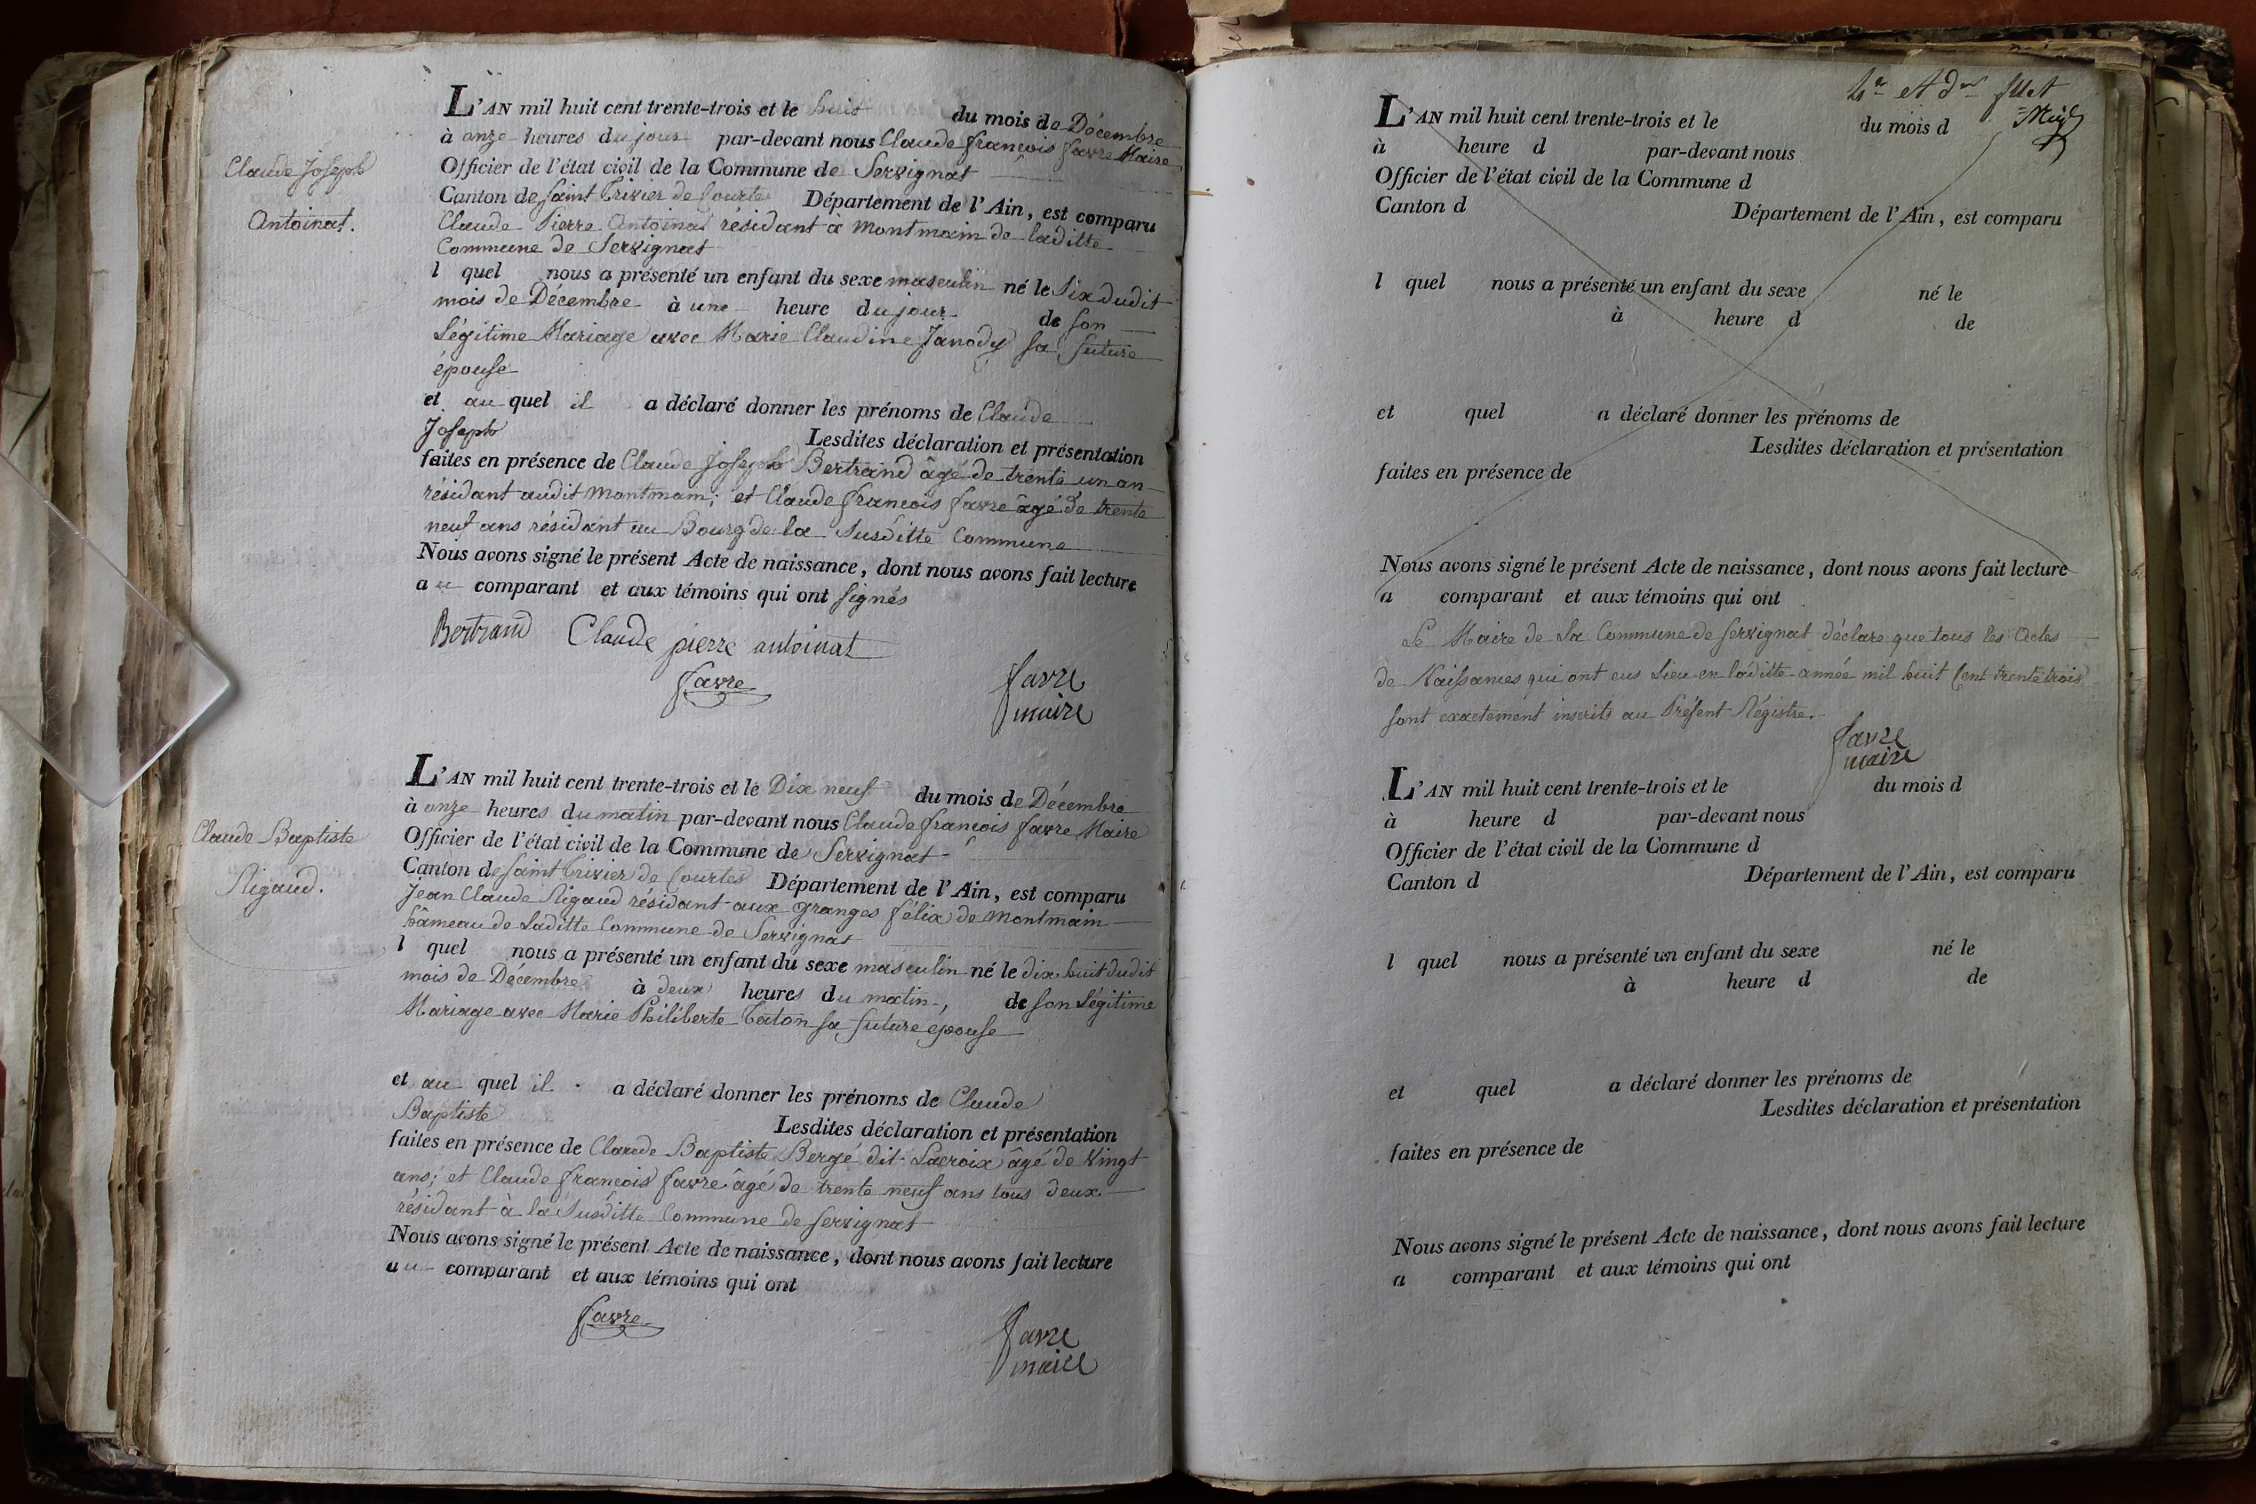 L'AN mil huit cent trente-trois et le huit du mois de Décembre
à onze heures du jour par-devant nous Claude françois favre Maire
Officier de l'état civil de la Commune de Servignat
Canton de Saint Trivier de Courtes Département de l'Ain, est comparu
Claude Pierre Antoinat résidant à Montmain de laditte
Commune de Servignat
l quel nous a présenté un enfant du sexe masculin né le Six dudit
mois de Décembre à une heure du jour de son
Légitime Mariage avec Marie Claudine Janody sa future
épouse
et au quel il a déclaré donner les prénoms de Claude
Joseph Lesdites déclaration et présentation
faites en présence de Claude Joseph Bertrand âgé de trente un an
résidant audit Montmain; et Claude françois favre âgé de trente
neuf ans résidant au Bourg de la Susditte Commune
Nous avons signé le présent Acte de naissance, dont nous avons fait lecture
au comparant et aux témoins qui ont signés
Bertrand Claude pierre antoinat
favre
favre
maire
Claude Joseph
Antoinat.
L'AN mil huit cent trente-trois et le Dix neuf du mois de Décembre
à onze heures du matin par-devant nous Claude françois favre Maire
Officier de l'état civil de la Commune de Servignat
Canton de Saint Trivier de Courtes Département de l'Ain, est comparu
Jean Claude Rigaud résidant aux granges félix de Montmain
hâmeau de Laditte Commune de Servignat
l quel nous a présenté un enfant du sexe masculin né le dix huit dudit
mois de Décembre à deux heures du matin, de son Légitime
Mariage avec Marie Philiberte Taton sa future épouse
et au quel il a déclaré donner les prénoms de Claude
Baptiste Lesdites déclaration et présentation
faites en présence de Claude Baptiste Bergé dit Lacroix âgé de Vingt
ans; et Claude françois favre âgé de trente neuf ans tous deux
résidant à la Susditte Commune de Servignat
Nous avons signé le présent Acte de naissance, dont nous avons fait lecture
au comparant et aux témoins qui ont
favre
favre
maire
Claude Baptiste
Rigaud.
L'AN mil huit cent trente-trois et le du mois d
à heure d par-devant nous
Officier de l'état civil de la Commune d
Canton d Département de l'Ain, est comparu
l quel nous a présenté un enfant du sexe né le
à heure d de
et quel a déclaré donner les prénoms de
Lesdites déclaration et présentation
faites en présence de
Nous avons signé le présent Acte de naissance, dont nous avons fait lecture
a comparant et aux témoins qui ont
Le Maire de La Commune de Servignat déclare que tous les Actes
de Naissances qui ont eus Lieu en laditte année mil huit Cent trente trois
sont exactement inscrits au Présent Régistre.
favre
maire
L'AN mil huit cent trente-trois et le du mois d
à heure d par-devant nous
Officier de l'état civil de la Commune d
Canton d Département de l'Ain, est comparu
l quel nous a présenté un enfant du sexe né le
à heure d de
et quel a déclaré donner les prénoms de
Lesdites déclaration et présentation
faites en présence de
Nous avons signé le présent Acte de naissance, dont nous avons fait lecture
a comparant et aux témoins qui ont